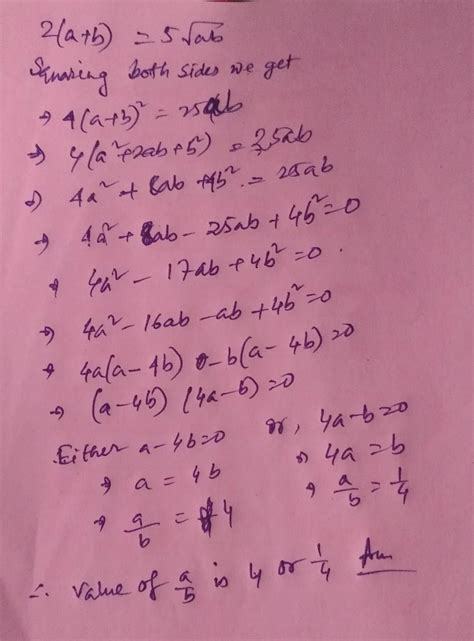 2(a+b) = 5√ab
Squaring both sides we get
⇒ 4(a+b)² = 25ab
⇒ 4(a²+2ab+b²) = 25ab
⇒ 4a² + 8ab + 4b² = 25ab
⇒ 4a² + 8ab - 25ab + 4b² = 0
⇒ 4a² - 17ab + 4b² = 0.
⇒ 4a² - 16ab - ab + 4b² = 0
⇒ 4a(a-4b) - b(a-4b) = 0
⇒ (a-4b) (4a-b) = 0
Either a-4b=0 or, 4a-b=0
⇒ a = 4b ⇒ 4a = b
⇒ a/b = 4 ⇒ a/b = 1/4
∴ value of a/b is 4 or 1/4 Ans